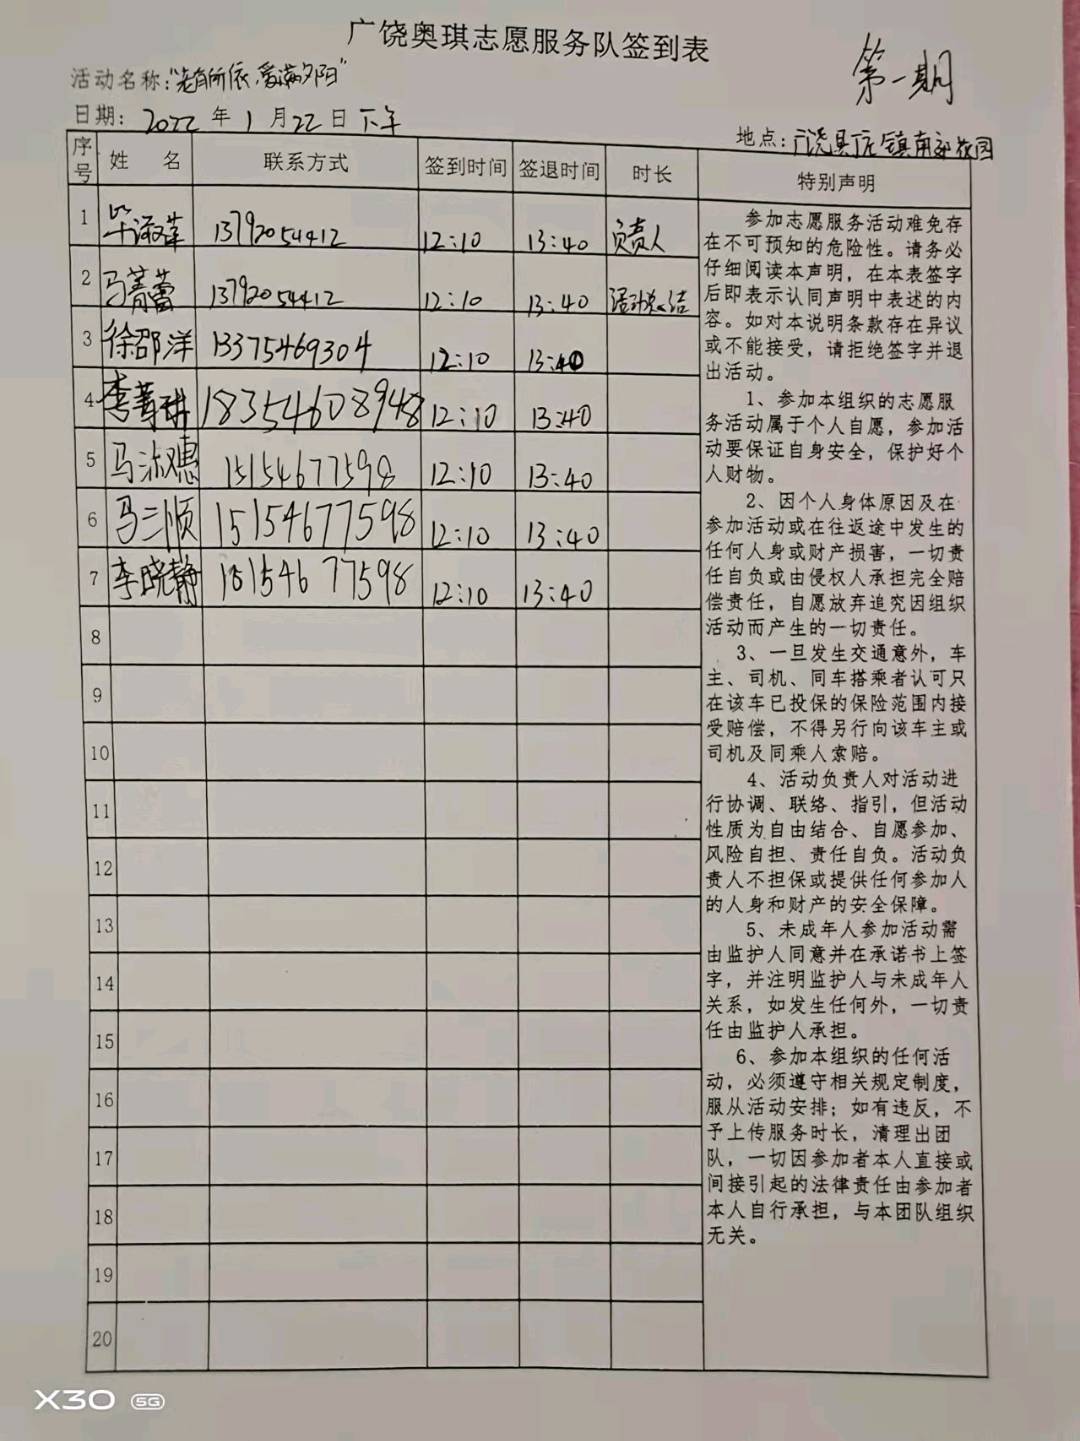 广饶奥琪志愿服务队签到表
第一期
活动名称:"老有所依,爱满夕阳"
日期: 2022 年 1 月 22 日 下午
地点: 广饶县丁庄镇南郊花园
序号 姓 名 联系方式 签到时间 签退时间 时长 特别声明
1 毕淑萍 13792054412 12:10 13:40 负责人
2 马菁蕾 13792054412 12:10 13:40 活动总结
3 徐邵洋 13375469304 12:10 13:40
4 李菁琳 18354608948 12:10 13:40
5 马淑惠 15154677598 12:10 13:40
6 马三顺 15154677598 12:10 13:40
7 李晓静 15154677598 12:10 13:40
8
9
10
11
12
13
14
15
16
17
18
19
20
参加志愿服务活动难免存
在不可预知的危险性。请务必
仔细阅读本声明,在本表签字
后即表示认同声明中表述的内
容。如对本说明条款存在异议
或不能接受,请拒绝签字并退
出活动。
1、参加本组织的志愿服
务活动属于个人自愿,参加活
动要保证自身安全,保护好个
人财物。
2、因个人身体原因及在
参加活动或在往返途中发生的
任何人身或财产损害,一切责
任自负或由侵权人承担完全赔
偿责任,自愿放弃追究因组织
活动而产生的一切责任。
3、一旦发生交通意外,车
主、司机、同车搭乘者认可只
在该车已投保的保险范围内接
受赔偿,不得另行向该车主或
司机及同乘人索赔。
4、活动负责人对活动进
行协调、联络、指引,但活动
性质为自由结合、自愿参加、
风险自担、责任自负。活动负
责人不担保或提供任何参加人
的人身和财产的安全保障。
5、未成年人参加活动需
由监护人同意并在承诺书上签
字,并注明监护人与未成年人
关系,如发生任何外,一切责
任由监护人承担。
6、参加本组织的任何活
动,必须遵守相关规定制度,
服从活动安排;如有违反,不
予上传服务时长,清理出团
队,一切因参加者本人直接或
间接引起的法律责任由参加者
本人自行承担,与本团队组织
无关。
X30 5G